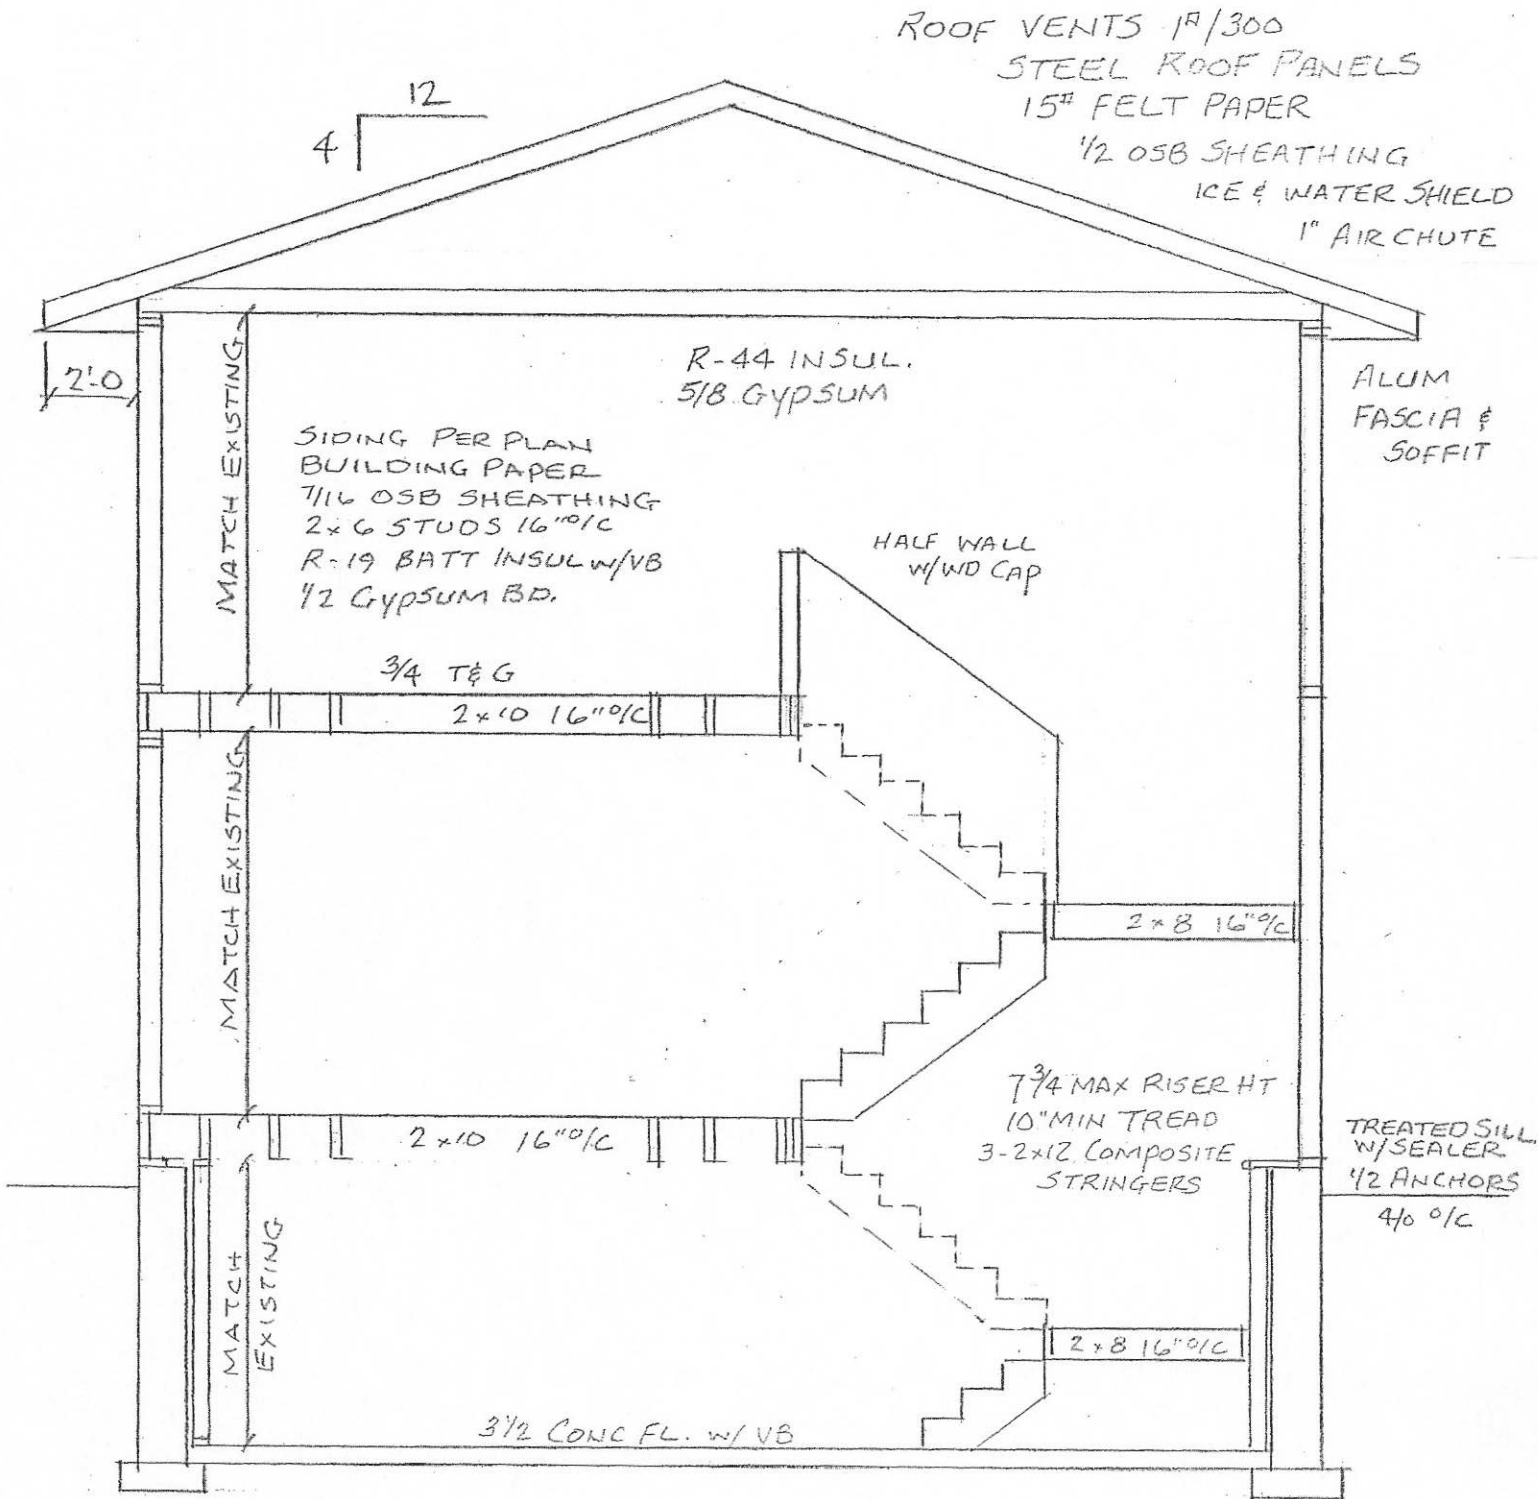 ROOF VENTS 1⌗/300
STEEL ROOF PANELS
15# FELT PAPER
1/2 OSB SHEATHING
ICE & WATER SHIELD
1" AIR CHUTE
12
4
2'-0
MATCH EXISTING
R-44 INSUL.
5/8 GYPSUM
ALUM
FASCIA &
SOFFIT
SIDING PER PLAN
BUILDING PAPER
7/16 OSB SHEATHING
2x6 STUDS 16" O/C
R-19 BATT INSUL W/VB
1/2 GYPSUM BD.
HALF WALL
W/WD CAP
3/4 T&G
2x10 16" O/C
MATCH EXISTING
2x8 16" O/C
7 3/4 MAX RISER HT
10" MIN TREAD
3-2x12 COMPOSITE
STRINGERS
2x10 16" O/C
TREATED SILL
W/SEALER
1/2 ANCHORS
4/0 O/C
MATCH
EXISTING
2x8 16" O/C
3 1/2 CONC FL. W/ VB